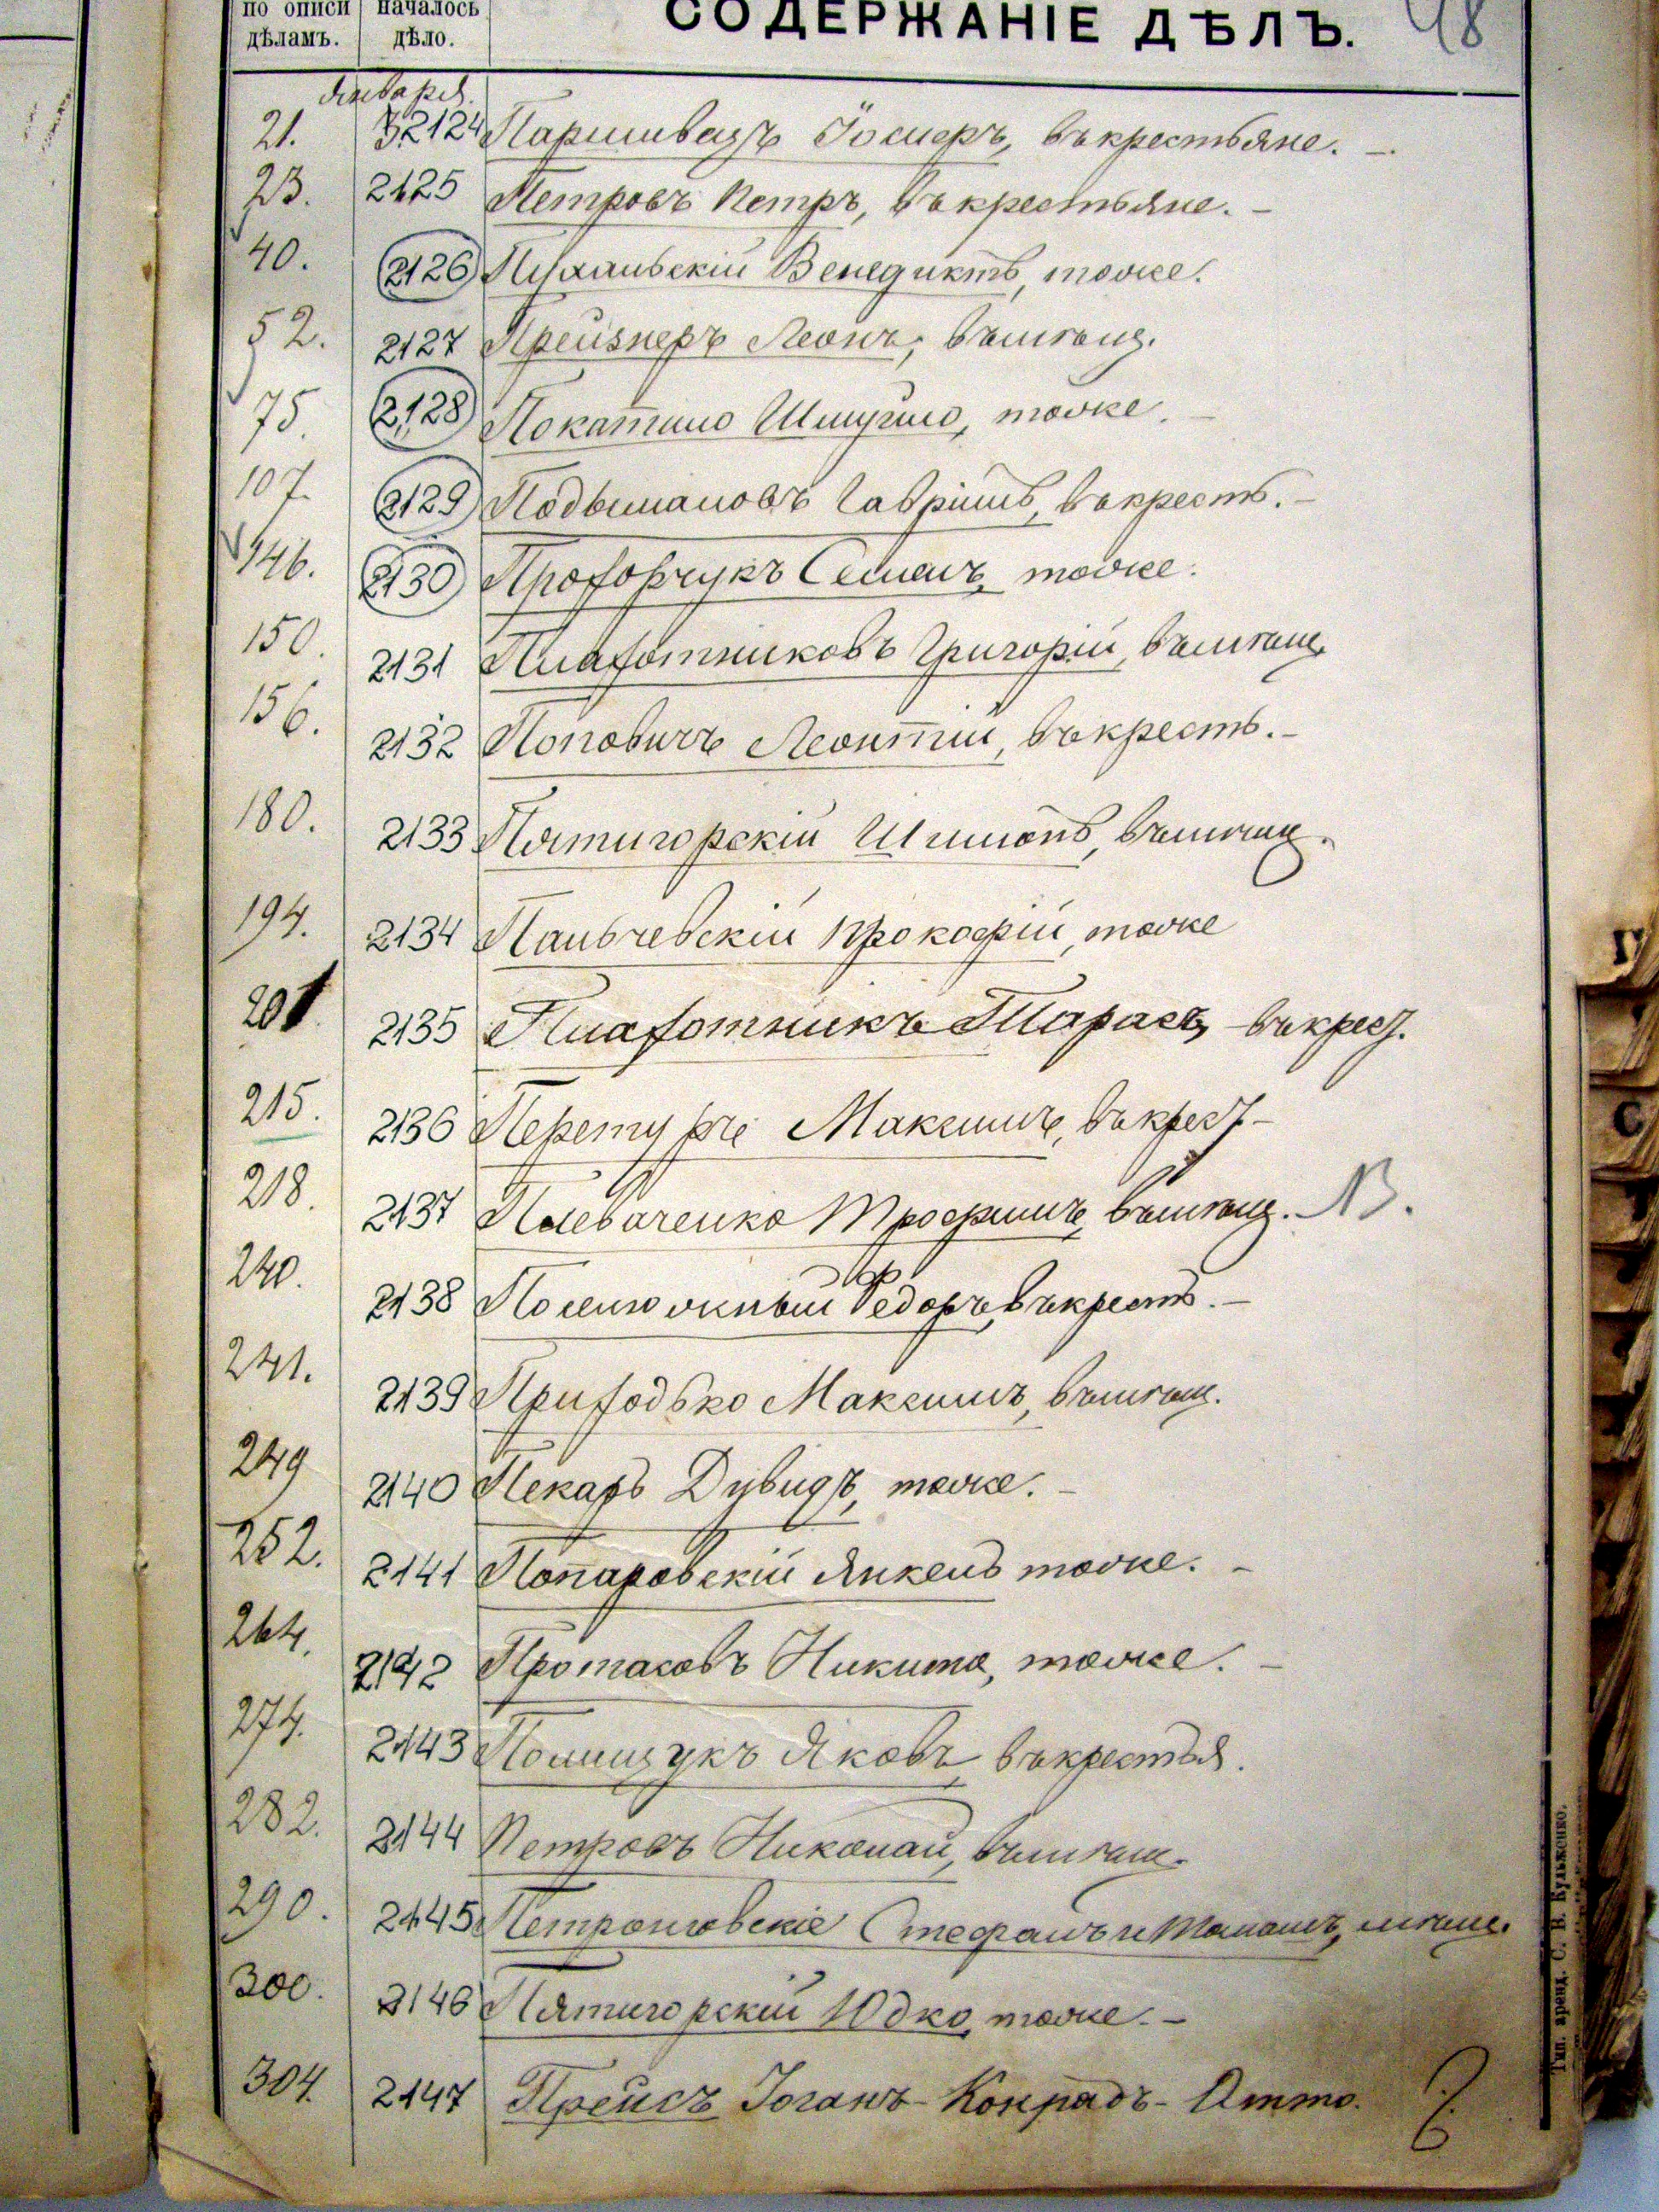 по описи началось СОДЕРЖАНІЕ ДѢЛЪ. 48
дѣламъ. дѣло.
Января.
21. 2124 Іосифъ, въ крестьяне. —
23. 2125 Петровъ Петръ, въ крестьяне. —
40. 2126 Венедиктъ, тоже.
52. 2127 Прейзнеръ Леонъ, въ мѣщ.
75. 2128 Покатило Шмуйло, тоже. —
107. 2129 Гавріилъ, въ крест. —
146. 2130 Прохорчукъ Семенъ, тоже.
150. 2131 Плахотниковъ Григорій, въ мѣщ.
156. 2132 Поповичъ Леонтій, въ крест. —
180. 2133 Пятигорскій въ мѣщ.
194. 2134 Пальчевскій Прокофій, тоже
201 2135 Плахотникъ Тарасъ, въ крест.
215. 2136 Максимъ, въ крест —
218. 2137 Плеваченко Трофимъ, въ мѣщ.
240. 2138 Федоръ, въ крест. —
241. 2139 Приходько Максимъ, въ мѣщ.
249 2140 Пекарь Дувидъ, тоже. —
252. 2141 Янкель тоже. —
264. 2142 Протасовъ Никита, тоже. —
274. 2143 Полищукъ Яковъ, въ крестья.
282. 2144 Петровъ Николай, въ мѣщ.
290. 2145 Стефанъ и мѣщ.
300. 2146 Пятигорскій Юдко, тоже. —
304. 2147 Прейсъ Іоганъ-Конрадъ-Отто.
Тип. аренд. С. В. Кульженко.